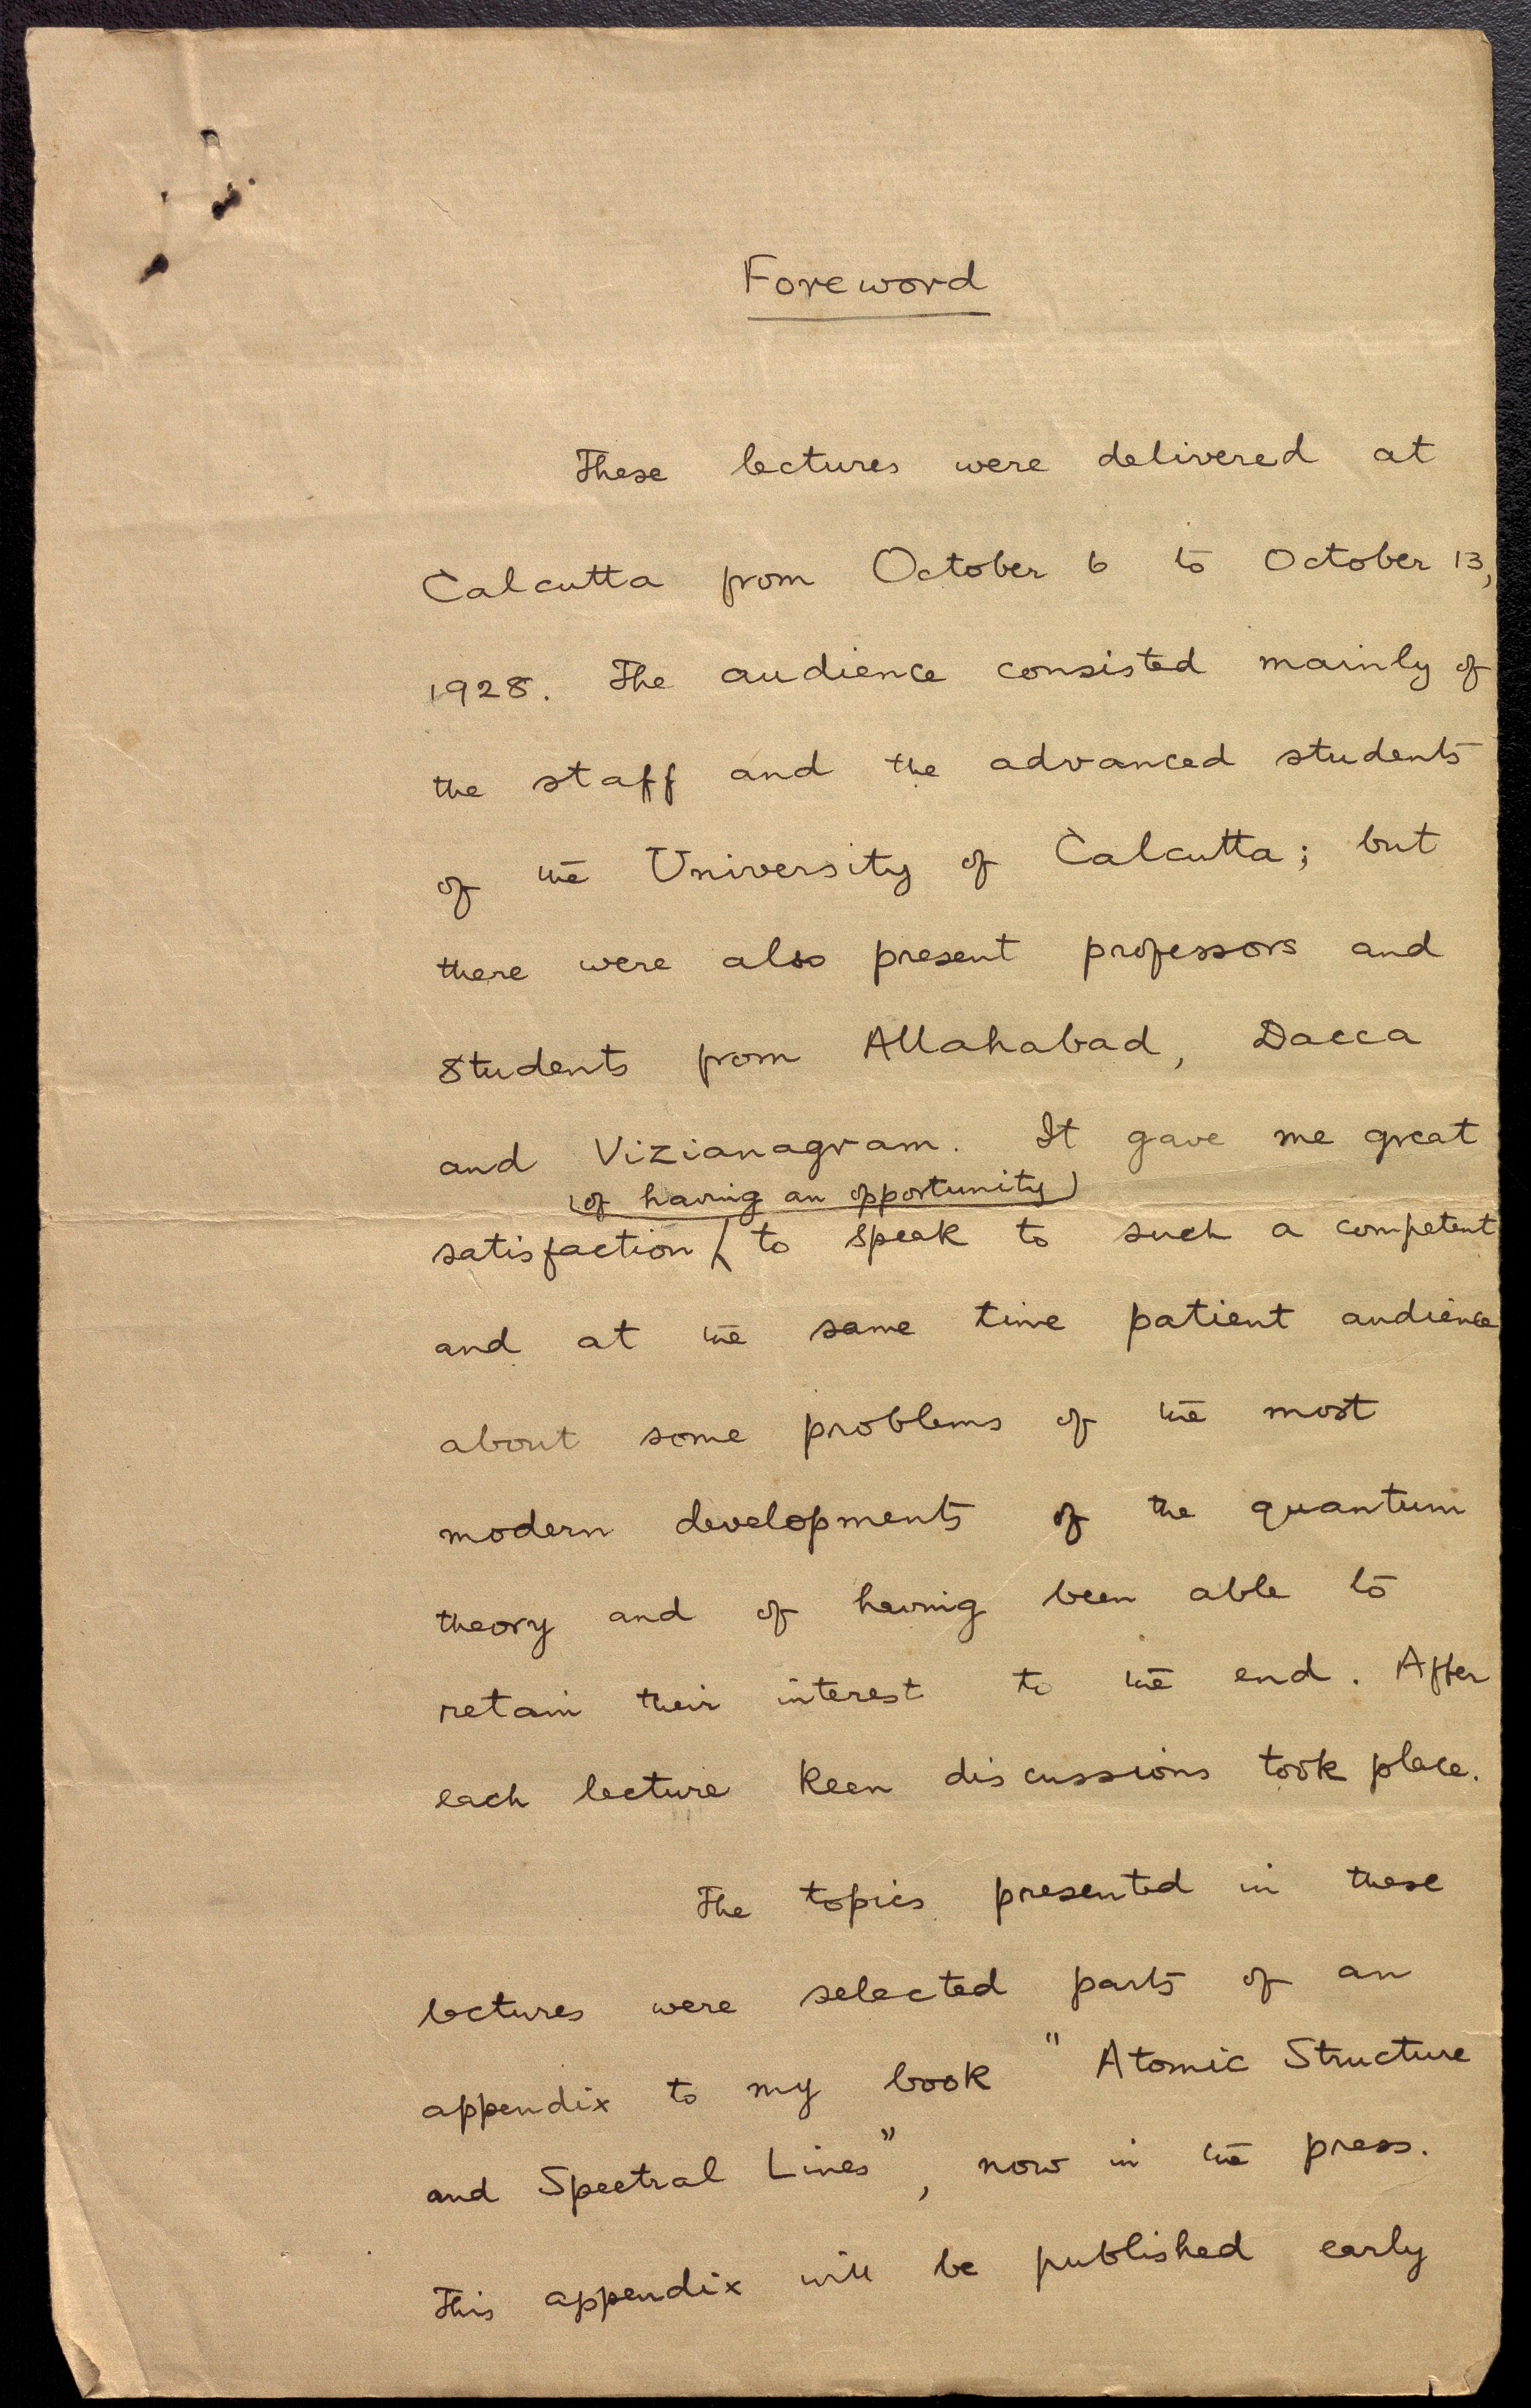 Foreword
These lectures were delivered at
Calcutta from October 6 to October 13,
1928. The audience consisted mainly of
the staff and the advanced students
of the University of Calcutta; but
there were also present professors and
Students from Allahabad, Dacca
and Vizianagram. It gave me great
(of having an opportunity)
satisfaction to speak to such a competent
and at the same time patient audience
about some problems of the most
modern developments of the quantum
theory and of having been able to
retain their interest to the end. After
each lecture keen discussions took place.
The topics presented in these
lectures were selected parts of an
appendix to my book "Atomic Structure
and Spectral Lines", now in the press.
This appendix will be published early